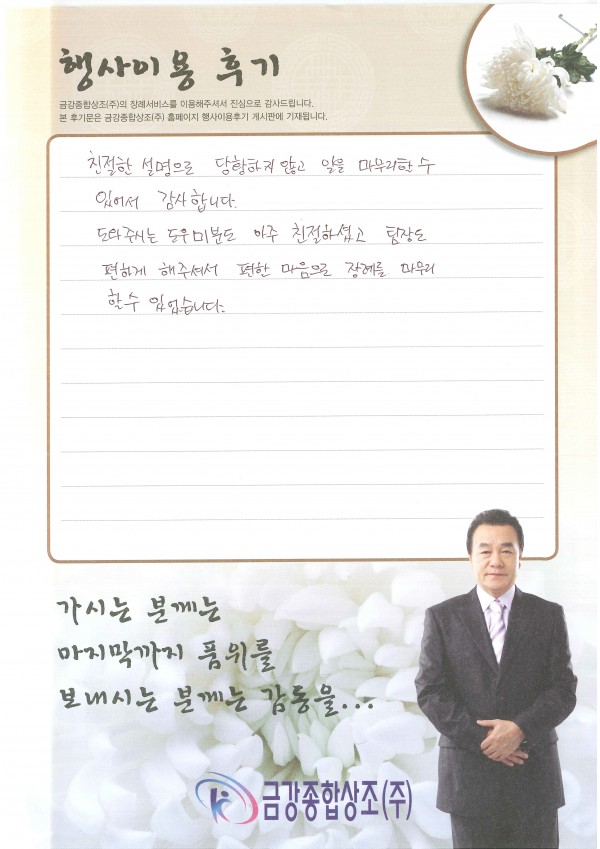 행사이용 후기
금강종합상조(주)의 장례서비스를 이용해주셔서 진심으로 감사드립니다.
본 후기문은 금강종합상조(주) 홈페이지 행사이용후기 게시판에 기재됩니다.
친절한 설명으로 당황하지 않고 일을 마무리한 수
있어서 감사합니다.
도와주시는 도우미분도 아주 친절하셨고 팀장도
편하게 해주셔서 편한 마음으로 장례를 마무리
할 수 있었습니다.
가시는 분께는
마지막까지 품위를
보내시는 분께는 감동을...
금강종합상조(주)